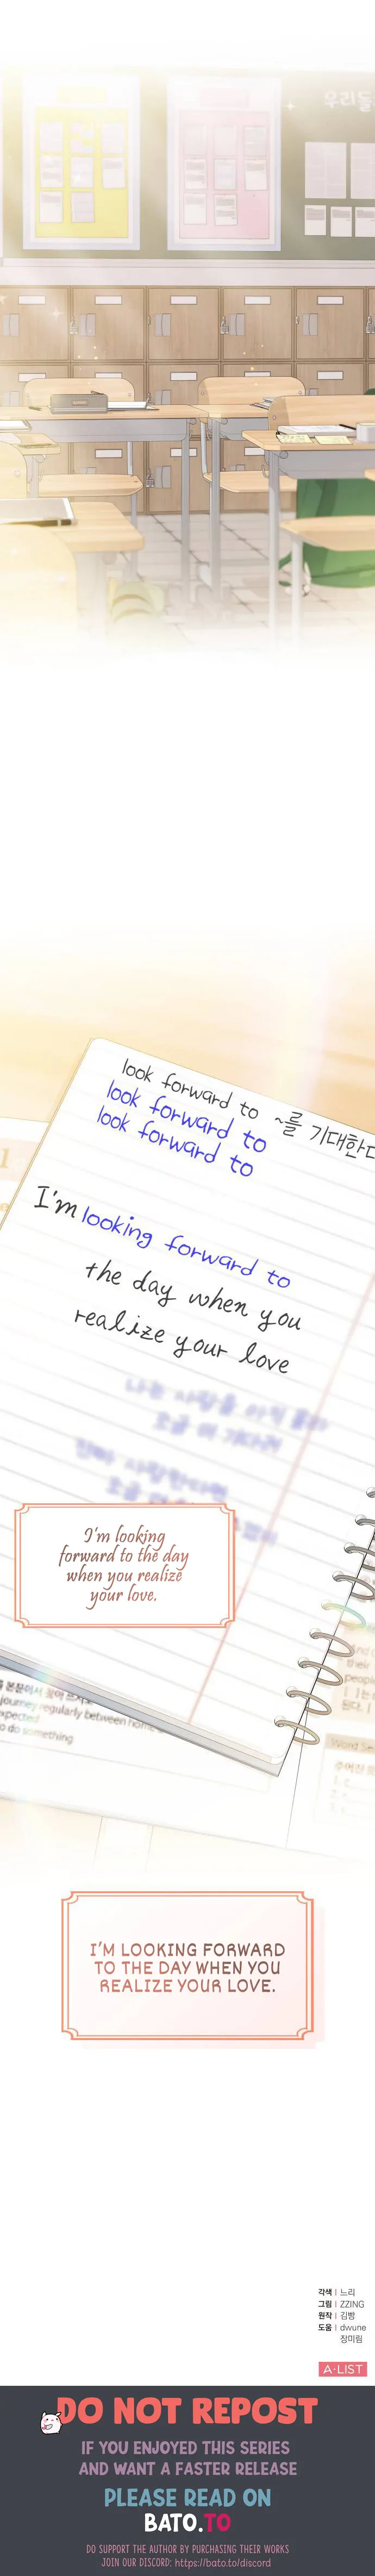 우리들
look forward to ~를 기대한다
look forward to
look forward to
I'm looking forward to
the day when you
realize your love
I'm looking
forward to the day
when you realize
your love.
journey regularly between home
expected
to do something
I'M LOOKING FORWARD
TO THE DAY WHEN YOU
REALIZE YOUR LOVE.
각색 | 느리
그림 | ZZING
원작 | 김빵
도움 | dwune
장미림
A-LIST
DO NOT REPOST
IF YOU ENJOYED THIS SERIES
AND WANT A FASTER RELEASE
PLEASE READ ON
BATO.TO
DO SUPPORT THE AUTHOR BY PURCHASING THEIR WORKS
JOIN OUR DISCORD: https://bato.to/discord